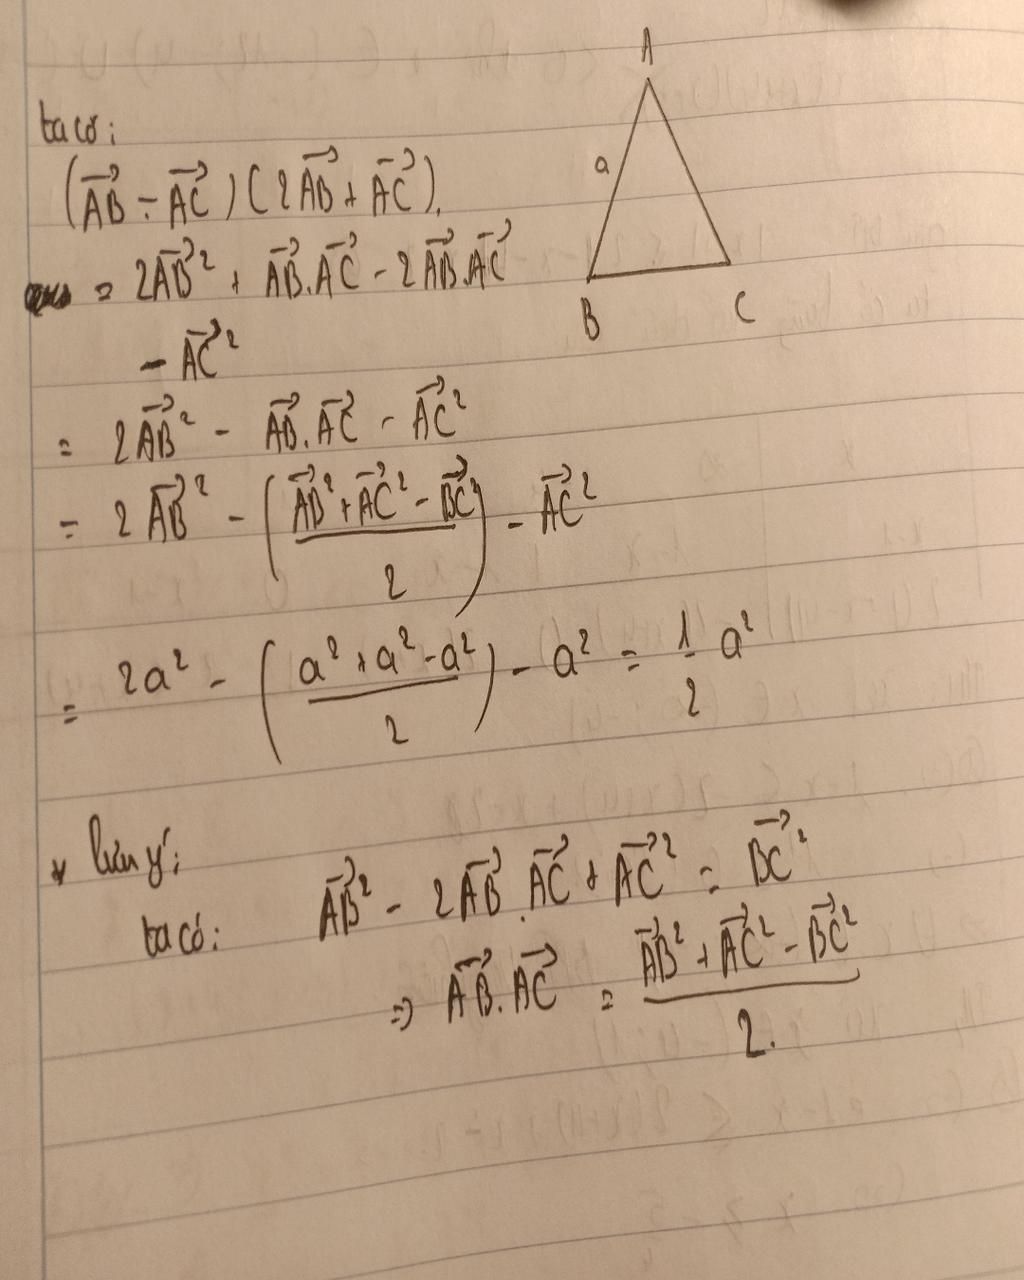 A
ta có:
(AB⃗ - AC⃗)(2AB⃗ + AC⃗).
a
= 2AB⃗² + AB⃗.AC⃗ - 2AB⃗.AC⃗
B C
- AC⃗²
= 2AB⃗² - AB⃗.AC⃗ - AC⃗²
= 2AB⃗² - ((AB⃗² + AC⃗² - BC⃗²)/2) - AC⃗²
= 2a² - ((a² + a² - a²)/2) - a² = 1/2 a²
* lưu ý:
ta có: AB⃗² - 2AB⃗.AC⃗ + AC⃗² = BC⃗²
=> AB⃗.AC⃗ = (AB⃗² + AC⃗² - BC⃗²)/2.